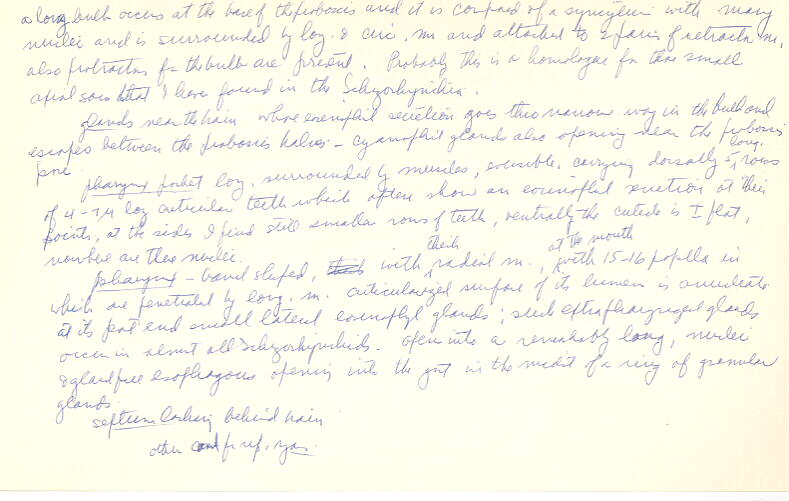 a long bulb occurs at the base of the proboscis and it is composed of a syncytium with many
nuclei and is surrounded by long. & circ. m. and attached to 2 pairs of retractor m.,
also protractors for the bulb are present. Probably this is a homologue for those small
axial sacs that I have found in the Schizorhynchia.
glands near the brain whose eosinophil secretion goes thru narrow way in the bulb and
escapes between the proboscis halves – cyanophil glands also opening near the proboscis
pore
pharynx pocket long. surrounded by muscles, eversible, carrying dorsally 5 long. rows
of 4-7µ long cuticular teeth which often show an eosinophil secretion at their
points, at the sides I find still smaller rows of teeth, ventrally the cuticle is ± flat,
nowhere are there nuclei.
pharynx – barrel shaped, with thick radial m., at the mouth with 15-16 papilla in
which are penetrated by long. m. cuticularized surface of its lumen is anucleate
at its post end small lateral eosinophil glands; such extrapharyngeal glands
occur in almost all Schizorhynchids. opens into a remarkably long, nuclei
& gland free esophagous opening into the gut in the midst of a ring of granular
glands.
septum lacking behind brain
other